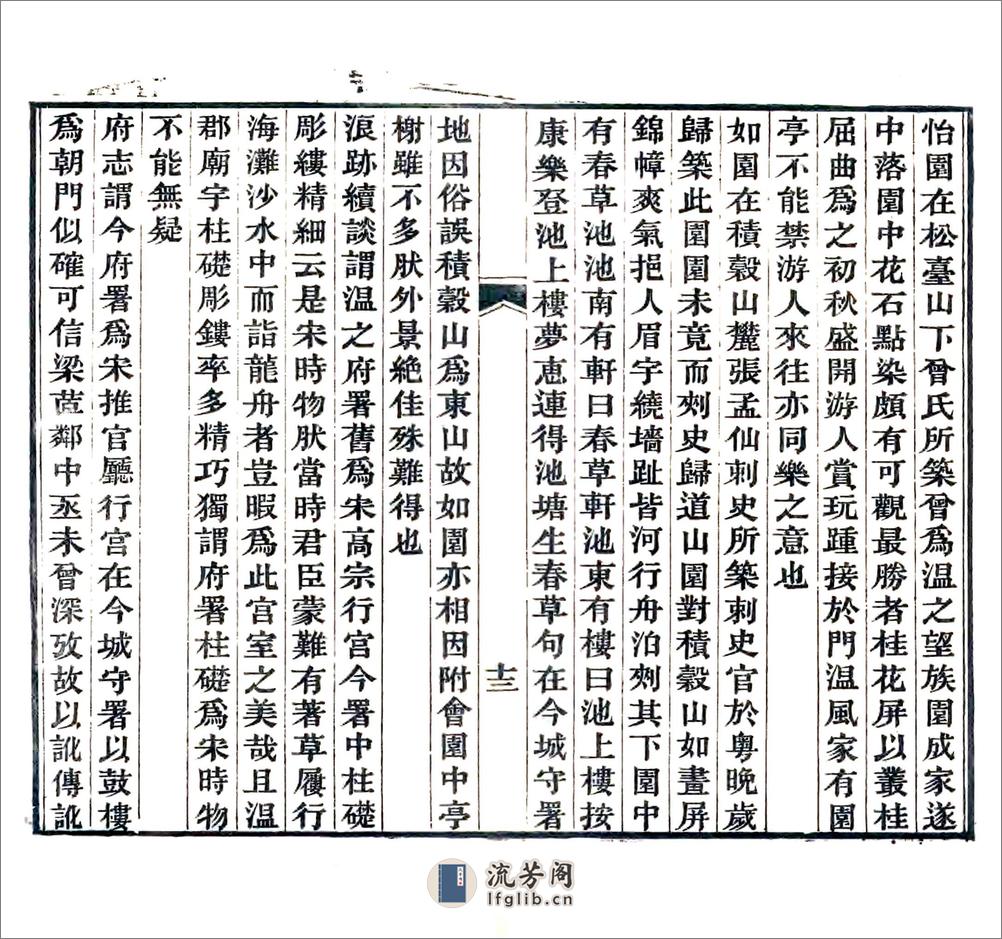 怡園在松臺山下曾氏所築曾爲溫之望族園成家遂
中落園中花石點染頗有可觀最勝者桂花屏以叢桂
屈曲爲之初秋盛開游人賞玩踵接於門溫風家有園
亭不能禁游人來往亦同樂之意也
如園在積穀山麓張孟仙刺史所築刺史官於粵晚歲
歸築此園園未竟而刺史歸道山園對積穀山如畫屏
錦幛爽氣挹人眉宇繞墻趾皆河行舟泊剡其下園中
有春草池池南有軒曰春草軒池東有樓曰池上樓按
康樂登池上樓夢惠連得池塘生春草句在今城守署
十三
地因俗誤積穀山爲東山故如園亦相因附會園中亭
榭雖不多肰外景絶佳殊難得也
浪跡續談謂溫之府署舊爲宋高宗行宮今署中柱礎
彫縷精細云是宋時物肰當時君臣蒙難有著草履行
海灘沙水中而詣龍舟者豈暇爲此宮室之美哉且溫
郡廟宇柱礎彫鏤率多精巧獨謂府署柱礎爲宋時物
不能無疑
府志謂今府署爲宋推官廳行宮在今城守署以鼓樓
爲朝門似確可信梁茝鄰中丞未曾深攷故以訛傳訛
流芳阁
lfglib.cn